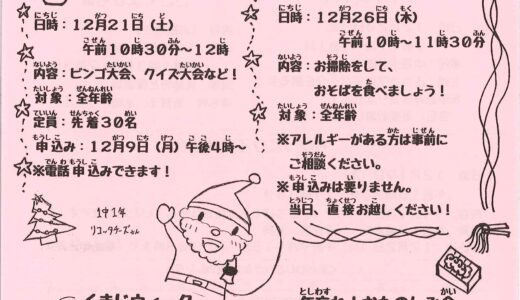 日時：12月21日（土）
午前10時30分～12時
内容：ビンゴ大会、クイズ大会など！
対象：全年齢
定員：先着30名
申込み：12月9日（月）午後4時～
※電話申込みできます！
中1年
リコッタチーズさん
日時：12月26日（木）
午前10時～11時30分
内容：お掃除をして、
おそばを食べましょう！
対象：全年齢
※アレルギーがある方は事前に
ご相談ください。
※申込みは要りません。
当日、直接お越しください！